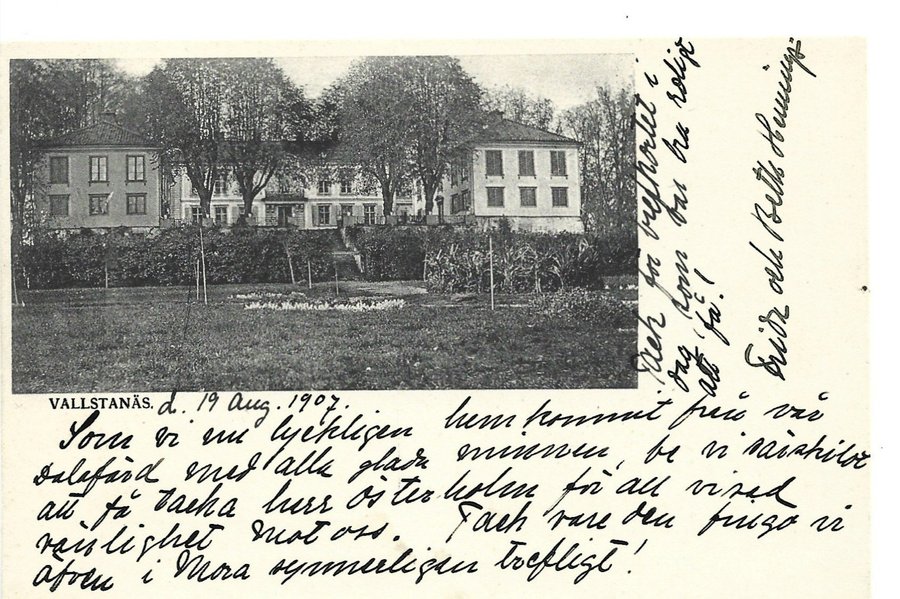 VALLSTANÄS. d. 19 Aug. 1907.
Som vi nu lyckligen hemkommit från vår
Dalafärd med alla glada minnen, be vi särskildt
att få tacka herr Österholm för all visad
vänlighet mot oss. Tack vare den fingo vi
äfven i Mora synnerligen trefligt!
Tack för brefkortet i
dag som var bra roligt
att få!
Frida och Betts Hennings